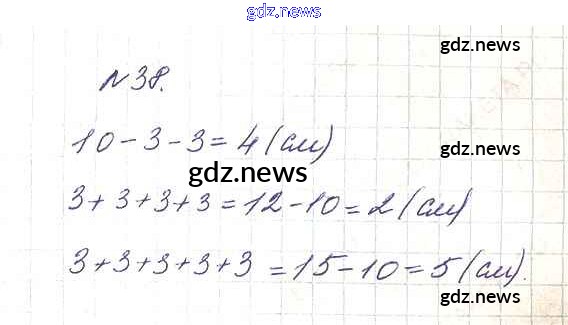 gdz.news
gdz.news
№38.
10-3-3=4(см)
gdz.news
gdz.news
3+3+3+3=12-10=2(см)
gdz.news
3+3+3+3+3=15-10=5(см).
gdz.news